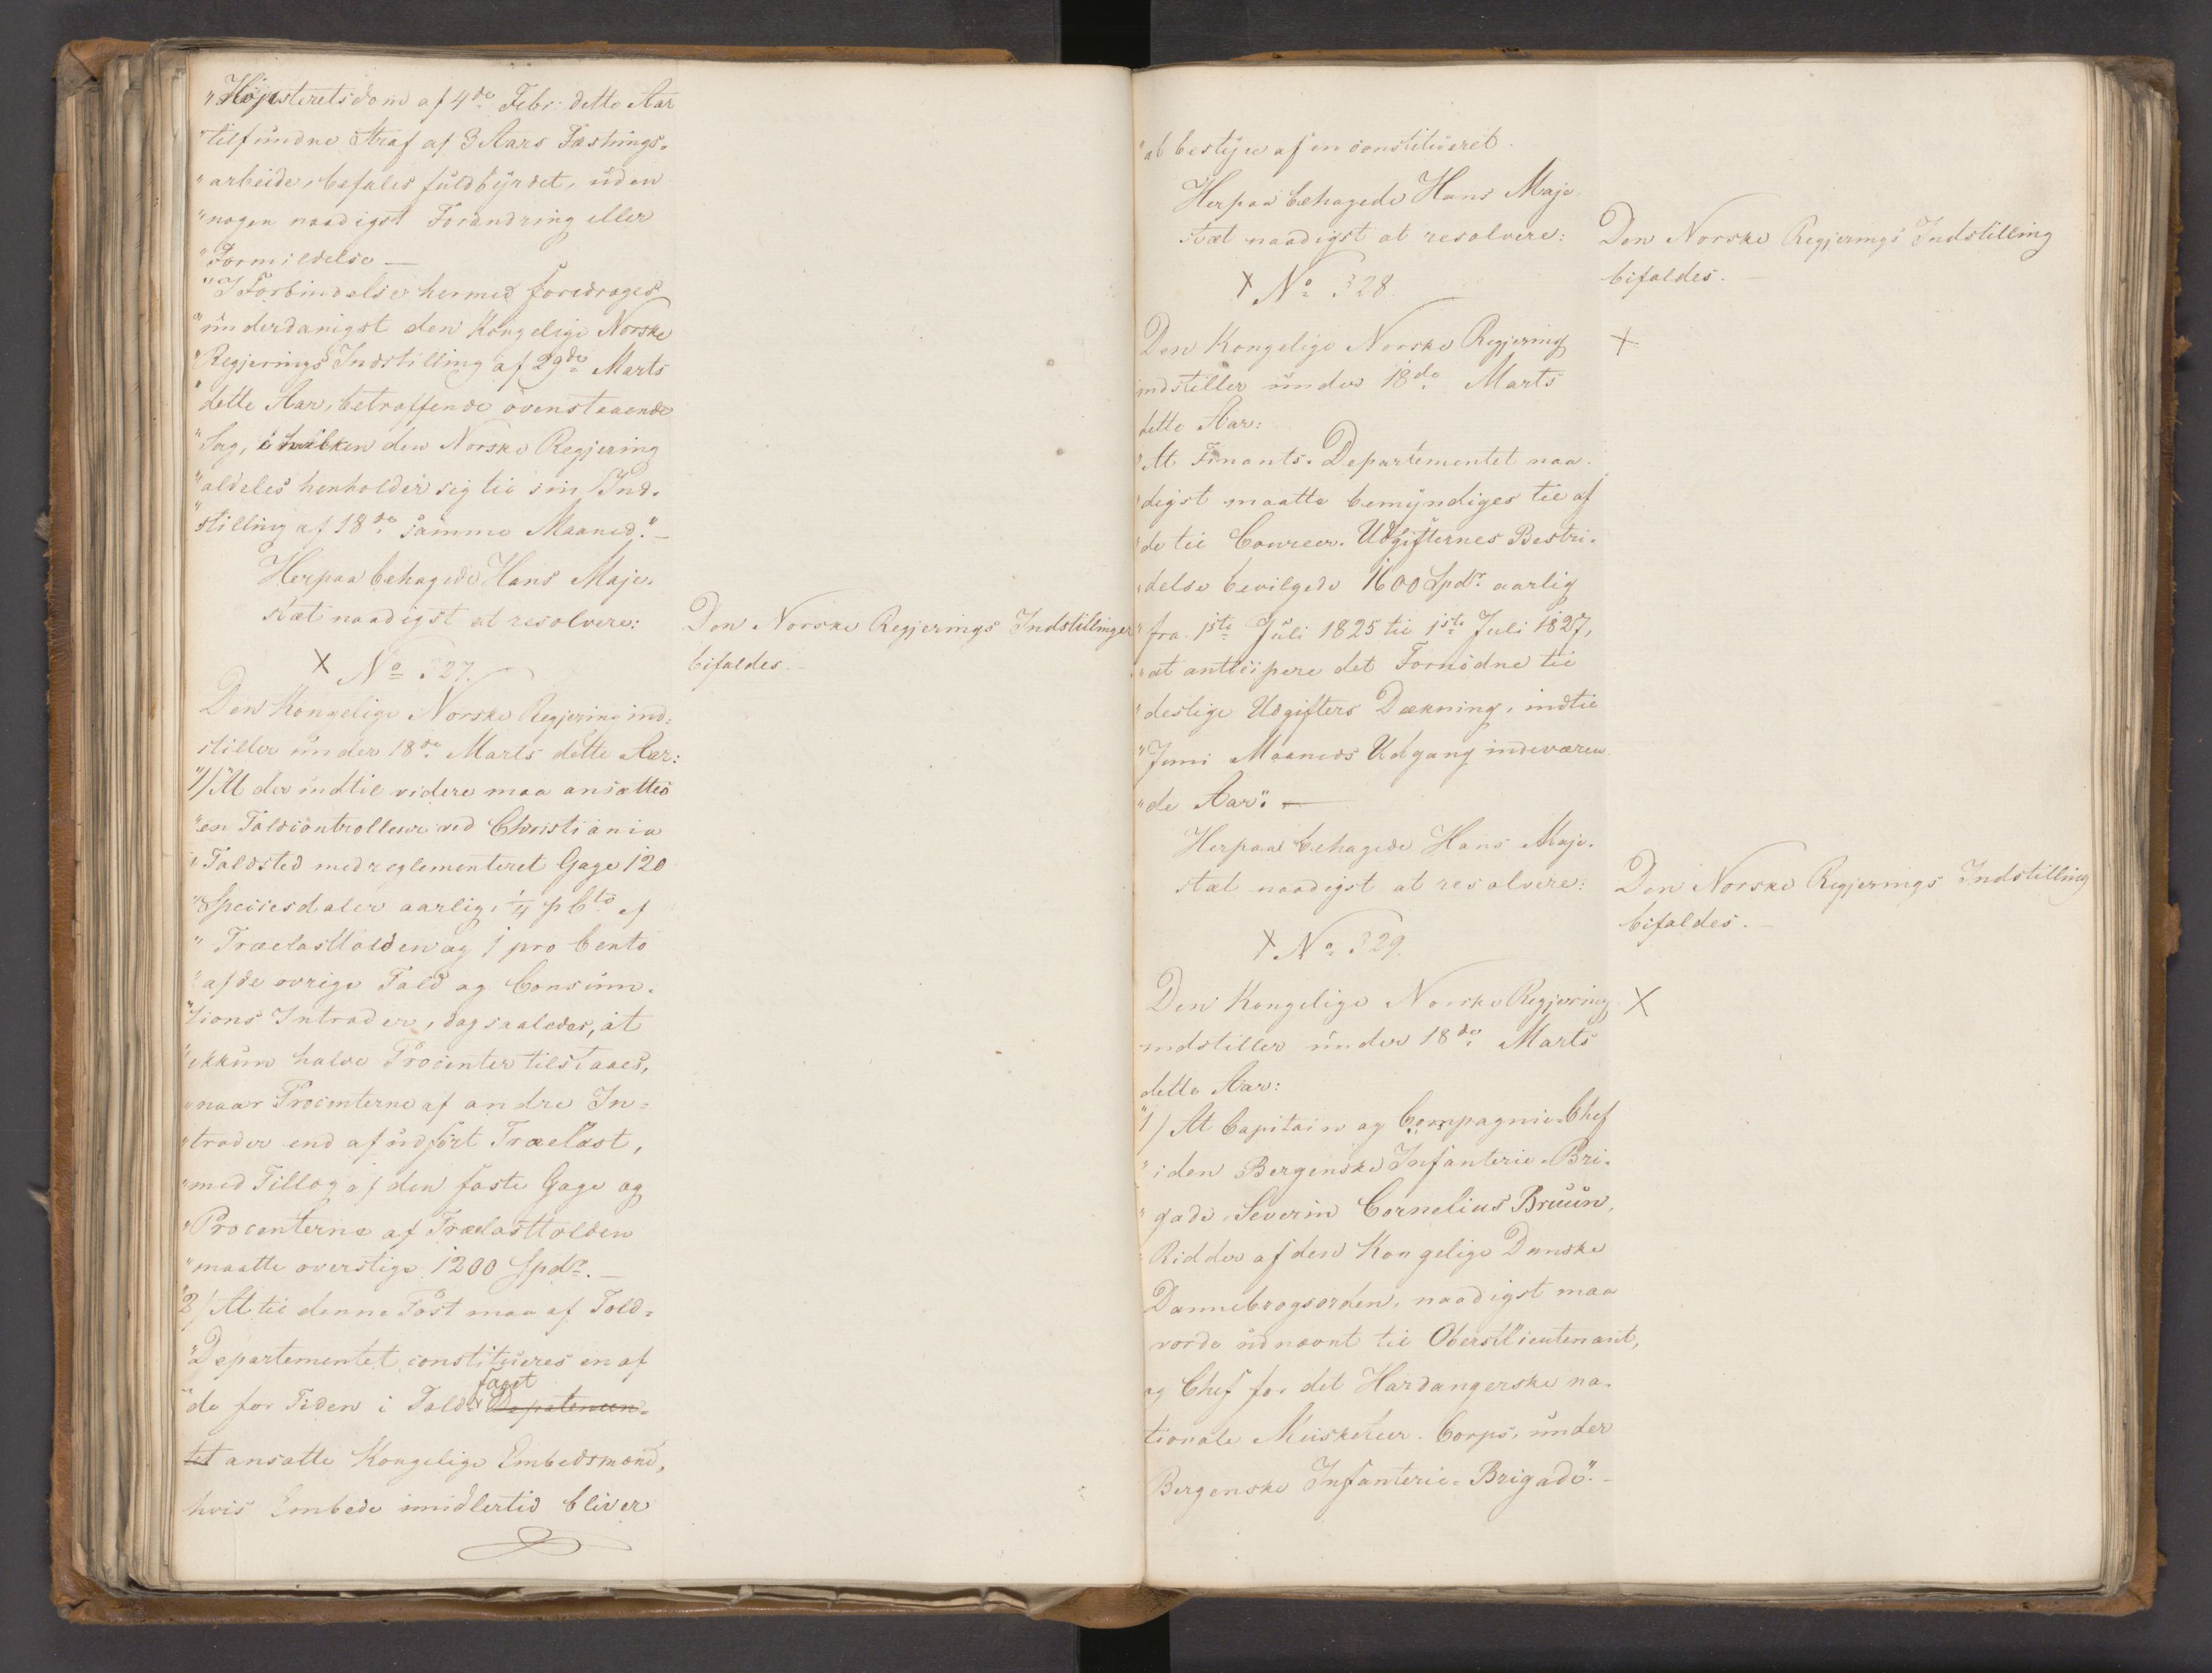 "Højesteretsdom af 4de Febr: dette Aar
"tilfundne Straf af 3 Aars Fæstnings-
"arbeide, befales fuldbyrdet, uden
"nogen naadigst Forandring eller
"Formildelse —
"I Forbindelse hermed foredrages
"underdanigst den Kongelige Norske
"Regjerings Indstilling af 29de Marts
"dette Aar, betræffende ovenstaaende
"Sag, i hvilken den Norske Regjering
"aldeles henholder sig til sin Ind-
"stilling af 18de samme Maaned." —
Herpaa behagede Hans Maje-
stæt naadigst at resolvere:
Den Norske Regjerings Indstillinger
bifaldes. —
X No 327.
Den Kongelige Norske Regjering ind-
stiller under 18de Marts dette Aar:
"1/ At der indtil videre maa ansættes
"en Toldcontrolleur ved Christiania
"Toldsted med reglementeret Gage 120
"Speciesdaler aarlig, 1/4 p Cto af
"Trælasttolden og 1 pro Cento
"af de øvrige Told og Consum-
"tions Intrader, dog saaledes, at
"ikkun halve Procenter tilstaaes,
"naar Procenterne af andre In-
"trader end af udført Trælast,
"med Tillæg af den faste Gage og
"Procenterne af Trælasttolden
"maatte overstige 1200 Spdr. —
"2/ At til denne Post maa af Told-
"Departementet constitueres en af
"de for Tiden i Told- faget Depatemen-
tet ansatte Kongelige Embedsmænd,
hvis Embede imidlertid bliver
"at bestyre af en constitueret.
Herpaa behagede Hans Maje-
stæt naadigst at resolvere:
Den Norske Regjerings Indstilling
bifaldes. —
X No 328.
Den Kongelige Norske Regjering
X
indstiller under 18de Marts
dette Aar:
"At Finants-Departementet naa-
"digst maatte bemyndiges til af
"de til Coureer-Udgifternes Bestri-
"delse bevilgede 1600 Spdr. aarlig
"fra 1ste Juli 1825 til 1ste Juli 1827,
"at anticipere det Fornødne til
"deslige Udgifters Dækning, indtil
"Juni Maaneds Udgang indeværen-
"de Aar". —
Herpaa behagede Hans Maje-
stæt naadigst at resolvere:
Den Norske Regjerings Indstilling
bifaldes. —
X No 329.
Den Kongelige Norske Regjering
X
indstiller under 18de Marts
dette Aar:
"1/ At Capitain og Compagnie-Chef
"i den Bergenske Infanterie-Bri-
"gade, Severin Cornelius Bruun,
Ridder af den Kongelige Danske
Dannebrogsorden, naadigst maa
vorde udnævnt til Oberstlieutenant,
og Chef for det Hardangerske na-
tionale Musketeer-Corps, under
Bergenske Infanterie-Brigade". —